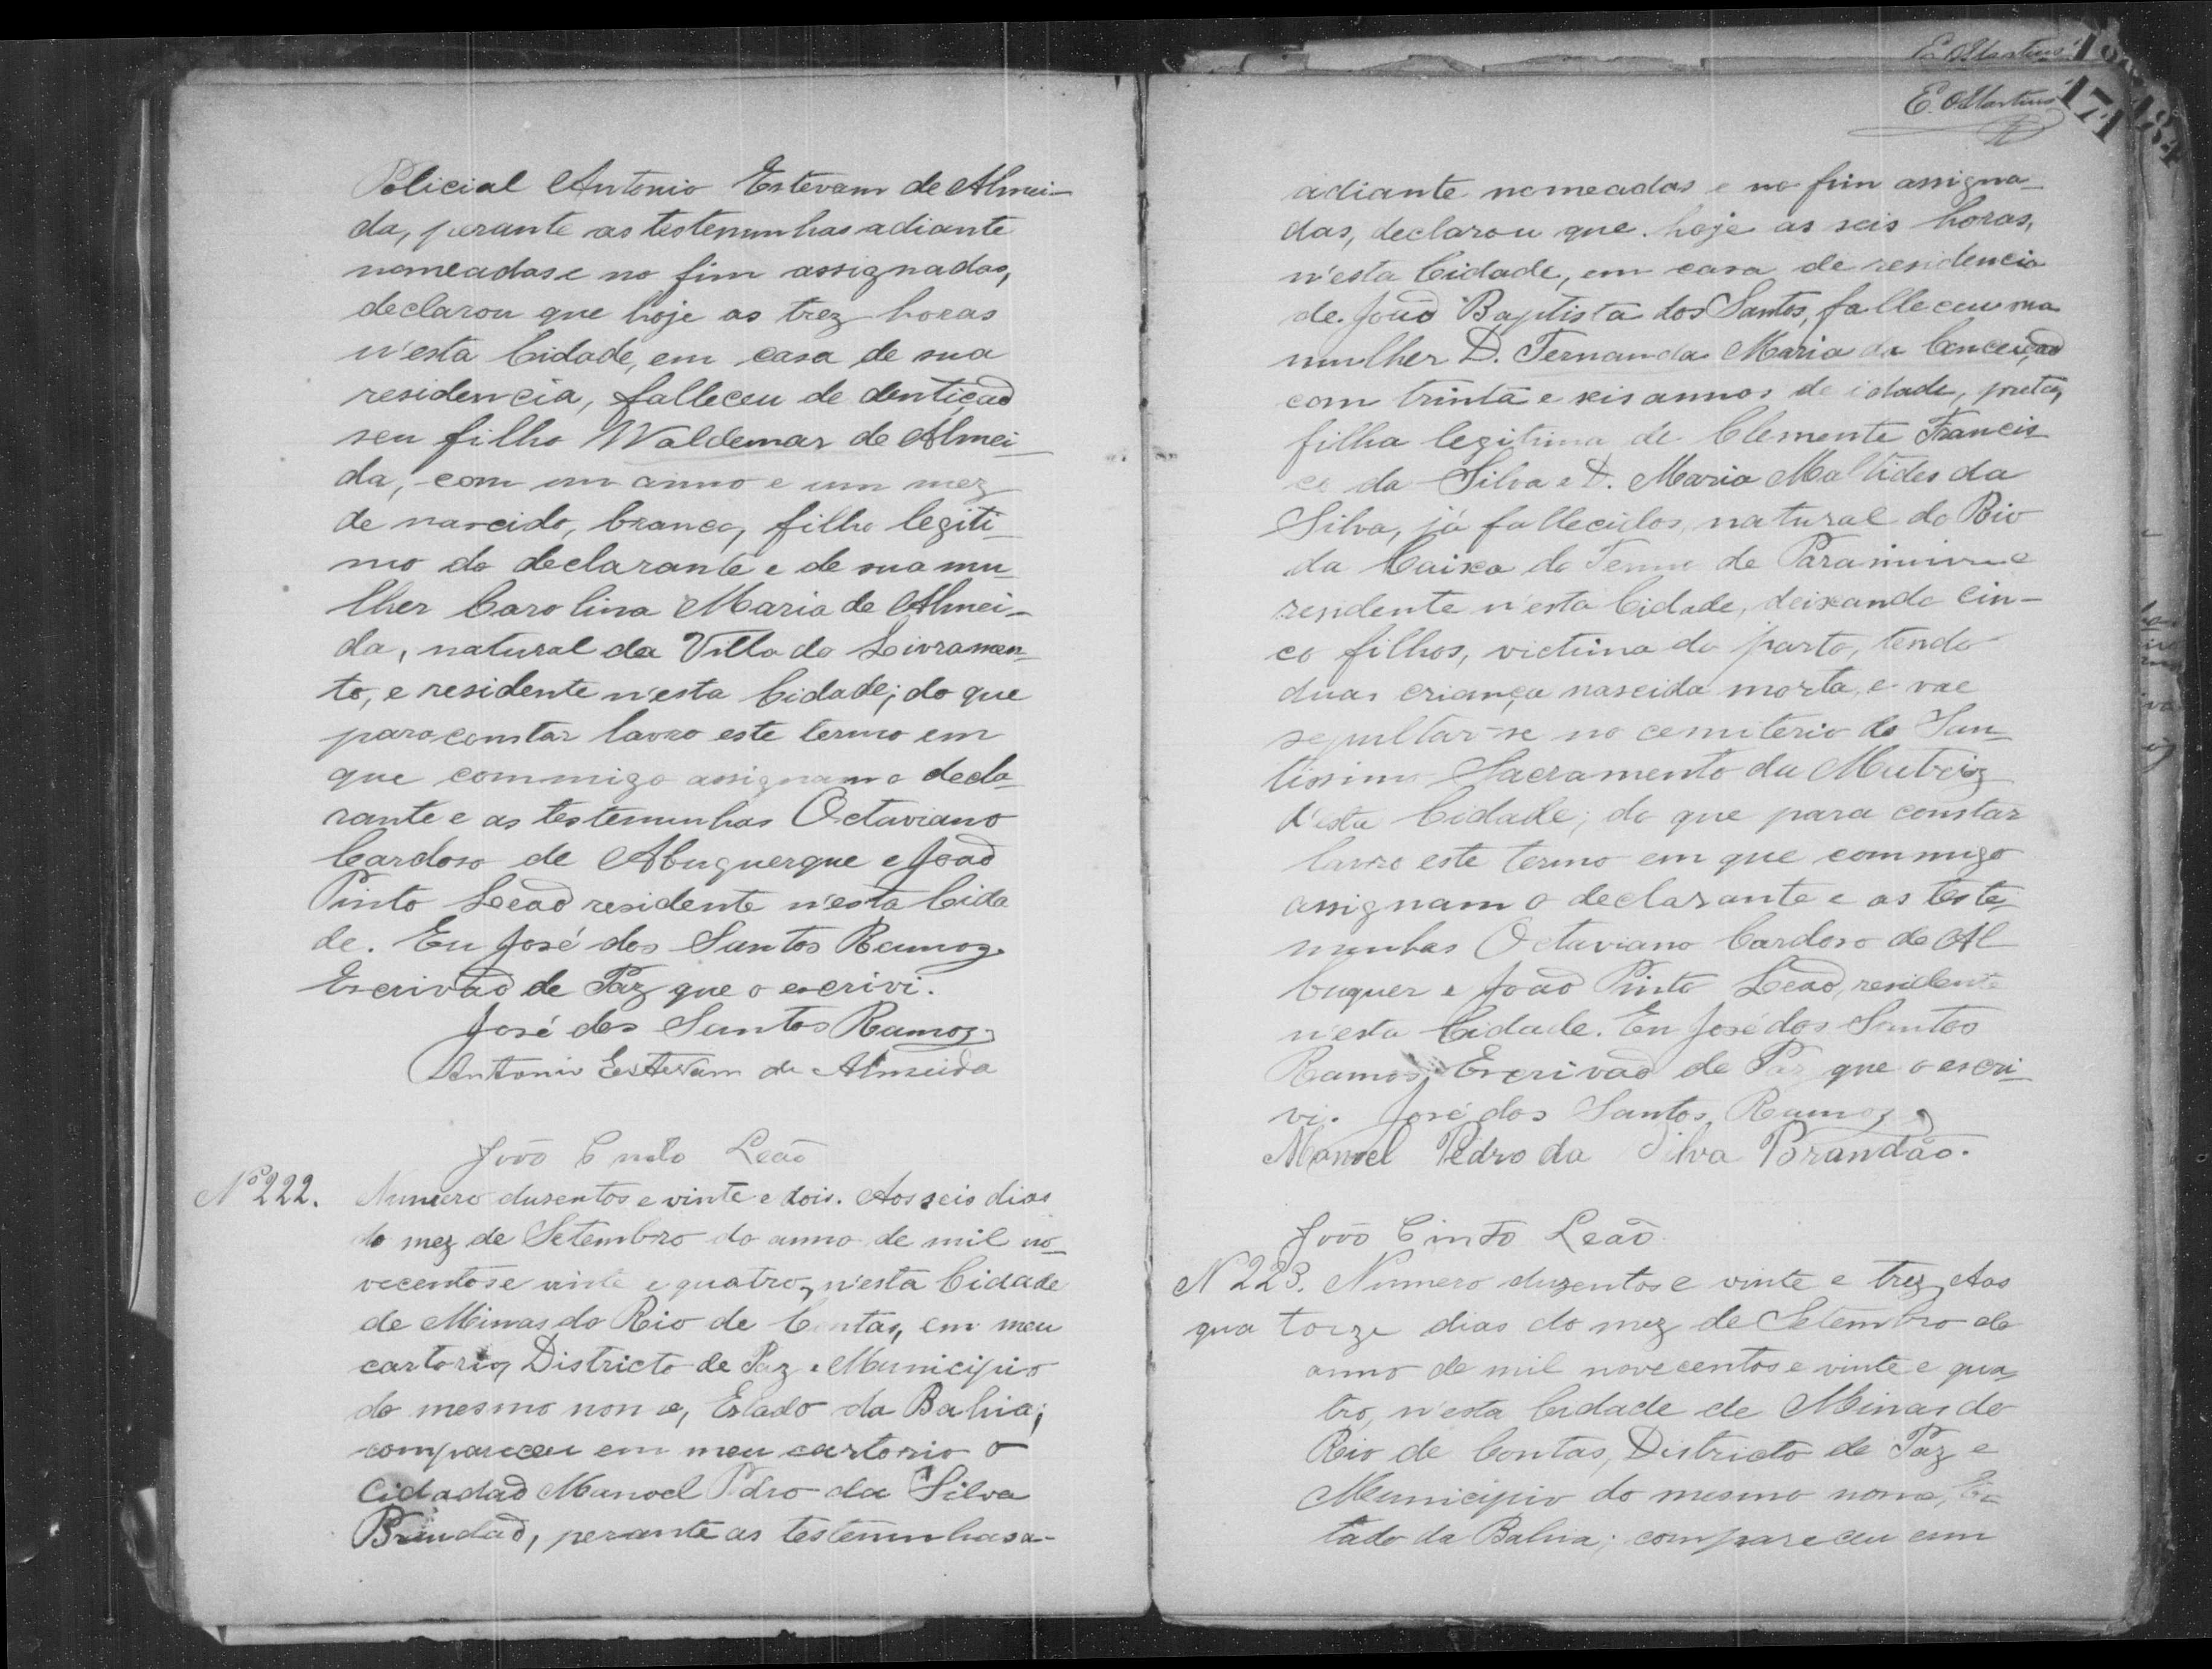 Policial Antonio Estevam de Almei-
da, perante as testemunhas adiante
nomeadas e no fim assignadas,
declarou que hoje as trez horas
n'esta Cidade, em casa de sua
residencia, falleceu de dentiçaõ
seu filho Waldemar de Almei-
da, com um anno e um mez
de nascido, branco, filho legiti-
mo do declarante e de sua mu-
lher Carolina Maria de Almei-
da, natural da Villa do Livramen-
to, e residente n'esta Cidade; do que
para constar lavro este termo em
que commigo assignam o decla-
rante e as testemunhas Octaviano
Cardoso de Albuquerque e Joaõ
Pinto Leaõ residente n'esta Cida
de. Eu José dos Santos Ramos
Escrivaõ de Paz que o escrivi.
José dos Santos Ramos
Antonio Estevam de Almeida
João Pinto Leão
Nº 222. Numero duzentos e vinte e dois. Aos seis dias
do mez de Setembro do anno de mil no-
vecentos e vinte e quatro, n'esta Cidade
de Minas do Rio de Contas, em meu
cartorio, Districto de Paz e Municipio
do mesmo nome, Estado da Bahia;
compareceu em meu cartorio o
Cidadaõ Manoel Pedro da Silva
Brandaõ, perante as testemunhas a-
E. Martins
E. Martins
171
184
adiante nomeadas e no fim assigna-
das, declarou que hoje as seis horas,
n'esta Cidade, em casa de residencia
de Joaõ Baptista dos Santos, falleceu sua
mulher D. Fernanda Maria da Conceiçaõ
com trinta e seis annos de idade, preta,
filha legitima de Clemente Francis-
co da Silva e D. Maria Maltides da
Silva, já fallecidos, natural do Rio
da Caixa do Termo de Paramirim e
residente n'esta Cidade, deixando cin-
co filhos, victima do parto, tendo
duas criança nascida morta, e vae
sepultar-se no cemiterio do San-
tissimo Sacramento da Matriz
d'esta Cidade; do que para constar
lavro este termo em que commigo
assignam o declarante e as teste-
munhas Octaviano Cardoso de Al
buquer e Joaõ Pinto Leaõ, residente
n'esta Cidade. Eu José dos Santos
Ramos, Escrivaõ de Paz que o escri-
vi. José dos Santos Ramos
Manoel Pedro da Silva Brandão.
João Pinto Leão
N 223. Numero duzentos e vinte e trez, Aos
qua torze dias do mez de Setembro do
anno de mil novecentos e vinte e qua-
tro, n'esta Cidade de Minas do
Rio de Contas, Districto de Paz e
Municipio do mesmo nome, Es-
tado da Bahia; compareceu em